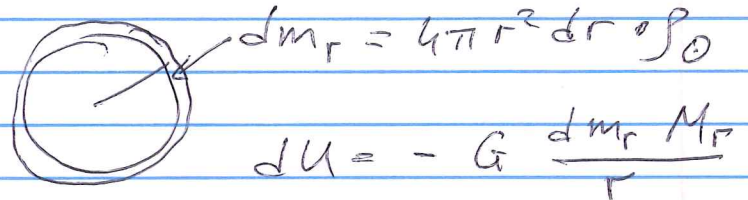 dm_r = 4πr² dr · ρ₀
dU = - G \frac{dm_r M_r}{r}